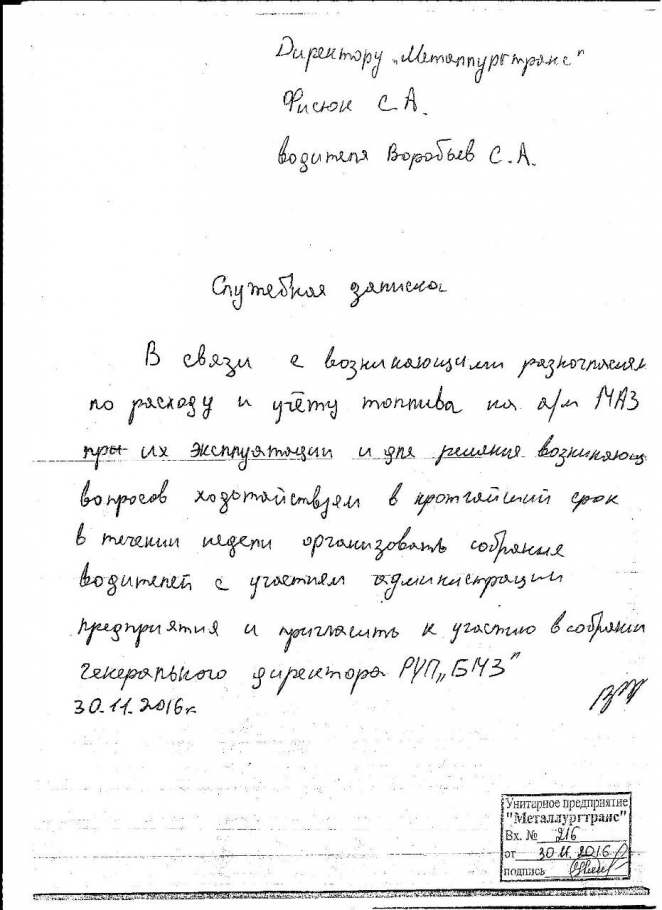 Директору „Металлургтранс"
Фисюк С.А.
водителя Воробьев С.А.
Служебная записка
В связи с возникающими разногласиям
по расходу и учёту топлива на а/м МАЗ
при их эксплуатации и для решения возникающ
вопросов ходотайствуем в кротчайший срок
в течении недели организовать собрание
водителей с участием администрации
предприятия и пригласить к участию в собрании
генерального директора РУП „БМЗ"
30.11.2016г.
Унитарное предприятие
"Металлургтранс"
Вх. № 216
от 30.11.2016
подпись